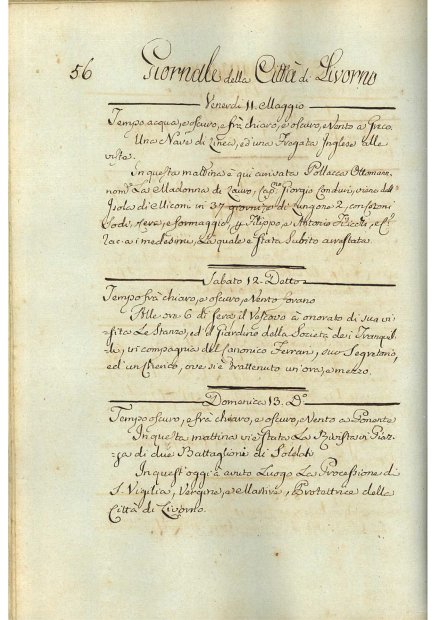 56 Giornale della Città di Livorno
Venerdi 11. Maggio
Tempo acqua, e oscuro, e frà chiaro, e oscuro, e Vento a Greco
Una Nave di Linea, ed una Fregata Inglese alle
vista.
In questa mattina è qui arrivata Pollacca Ottomana
nom.ᵗᵃ La Madonna di Cap.ⁿ Giorgio Conduri, viene dall'
Isola di Miconi in 37 giorni, e di Lungone 2, con Cotoni
Sodi, e formaggio, Filippo, e Antonio
a i medesimi, La quale è stata subito arrestata.
Sabato 12. Detto
Tempo frà chiaro, e oscuro, e Vento
Alle ore 6 di sera il Vescovo à onorato di sua vi-
sita Le Stanze, ed il Giardino della Società dei Tranquil-
li, in compagnia del Canonico Ferrari, suo Segretario,
ed un ove si è trattenuto un'ora, e mezzo.
Domenica 13. D.º
Tempo oscuro, e frà chiaro, e oscuro, e Vento a Ponente
In questa mattina vi è stata La Rivista in Piaz-
za di due Battaglioni di Soldati
In quest'oggi à avuto Luogo La Processione di
S. Vigilia, Vergine, e Martire, Protettrice della
Città di Livorno.